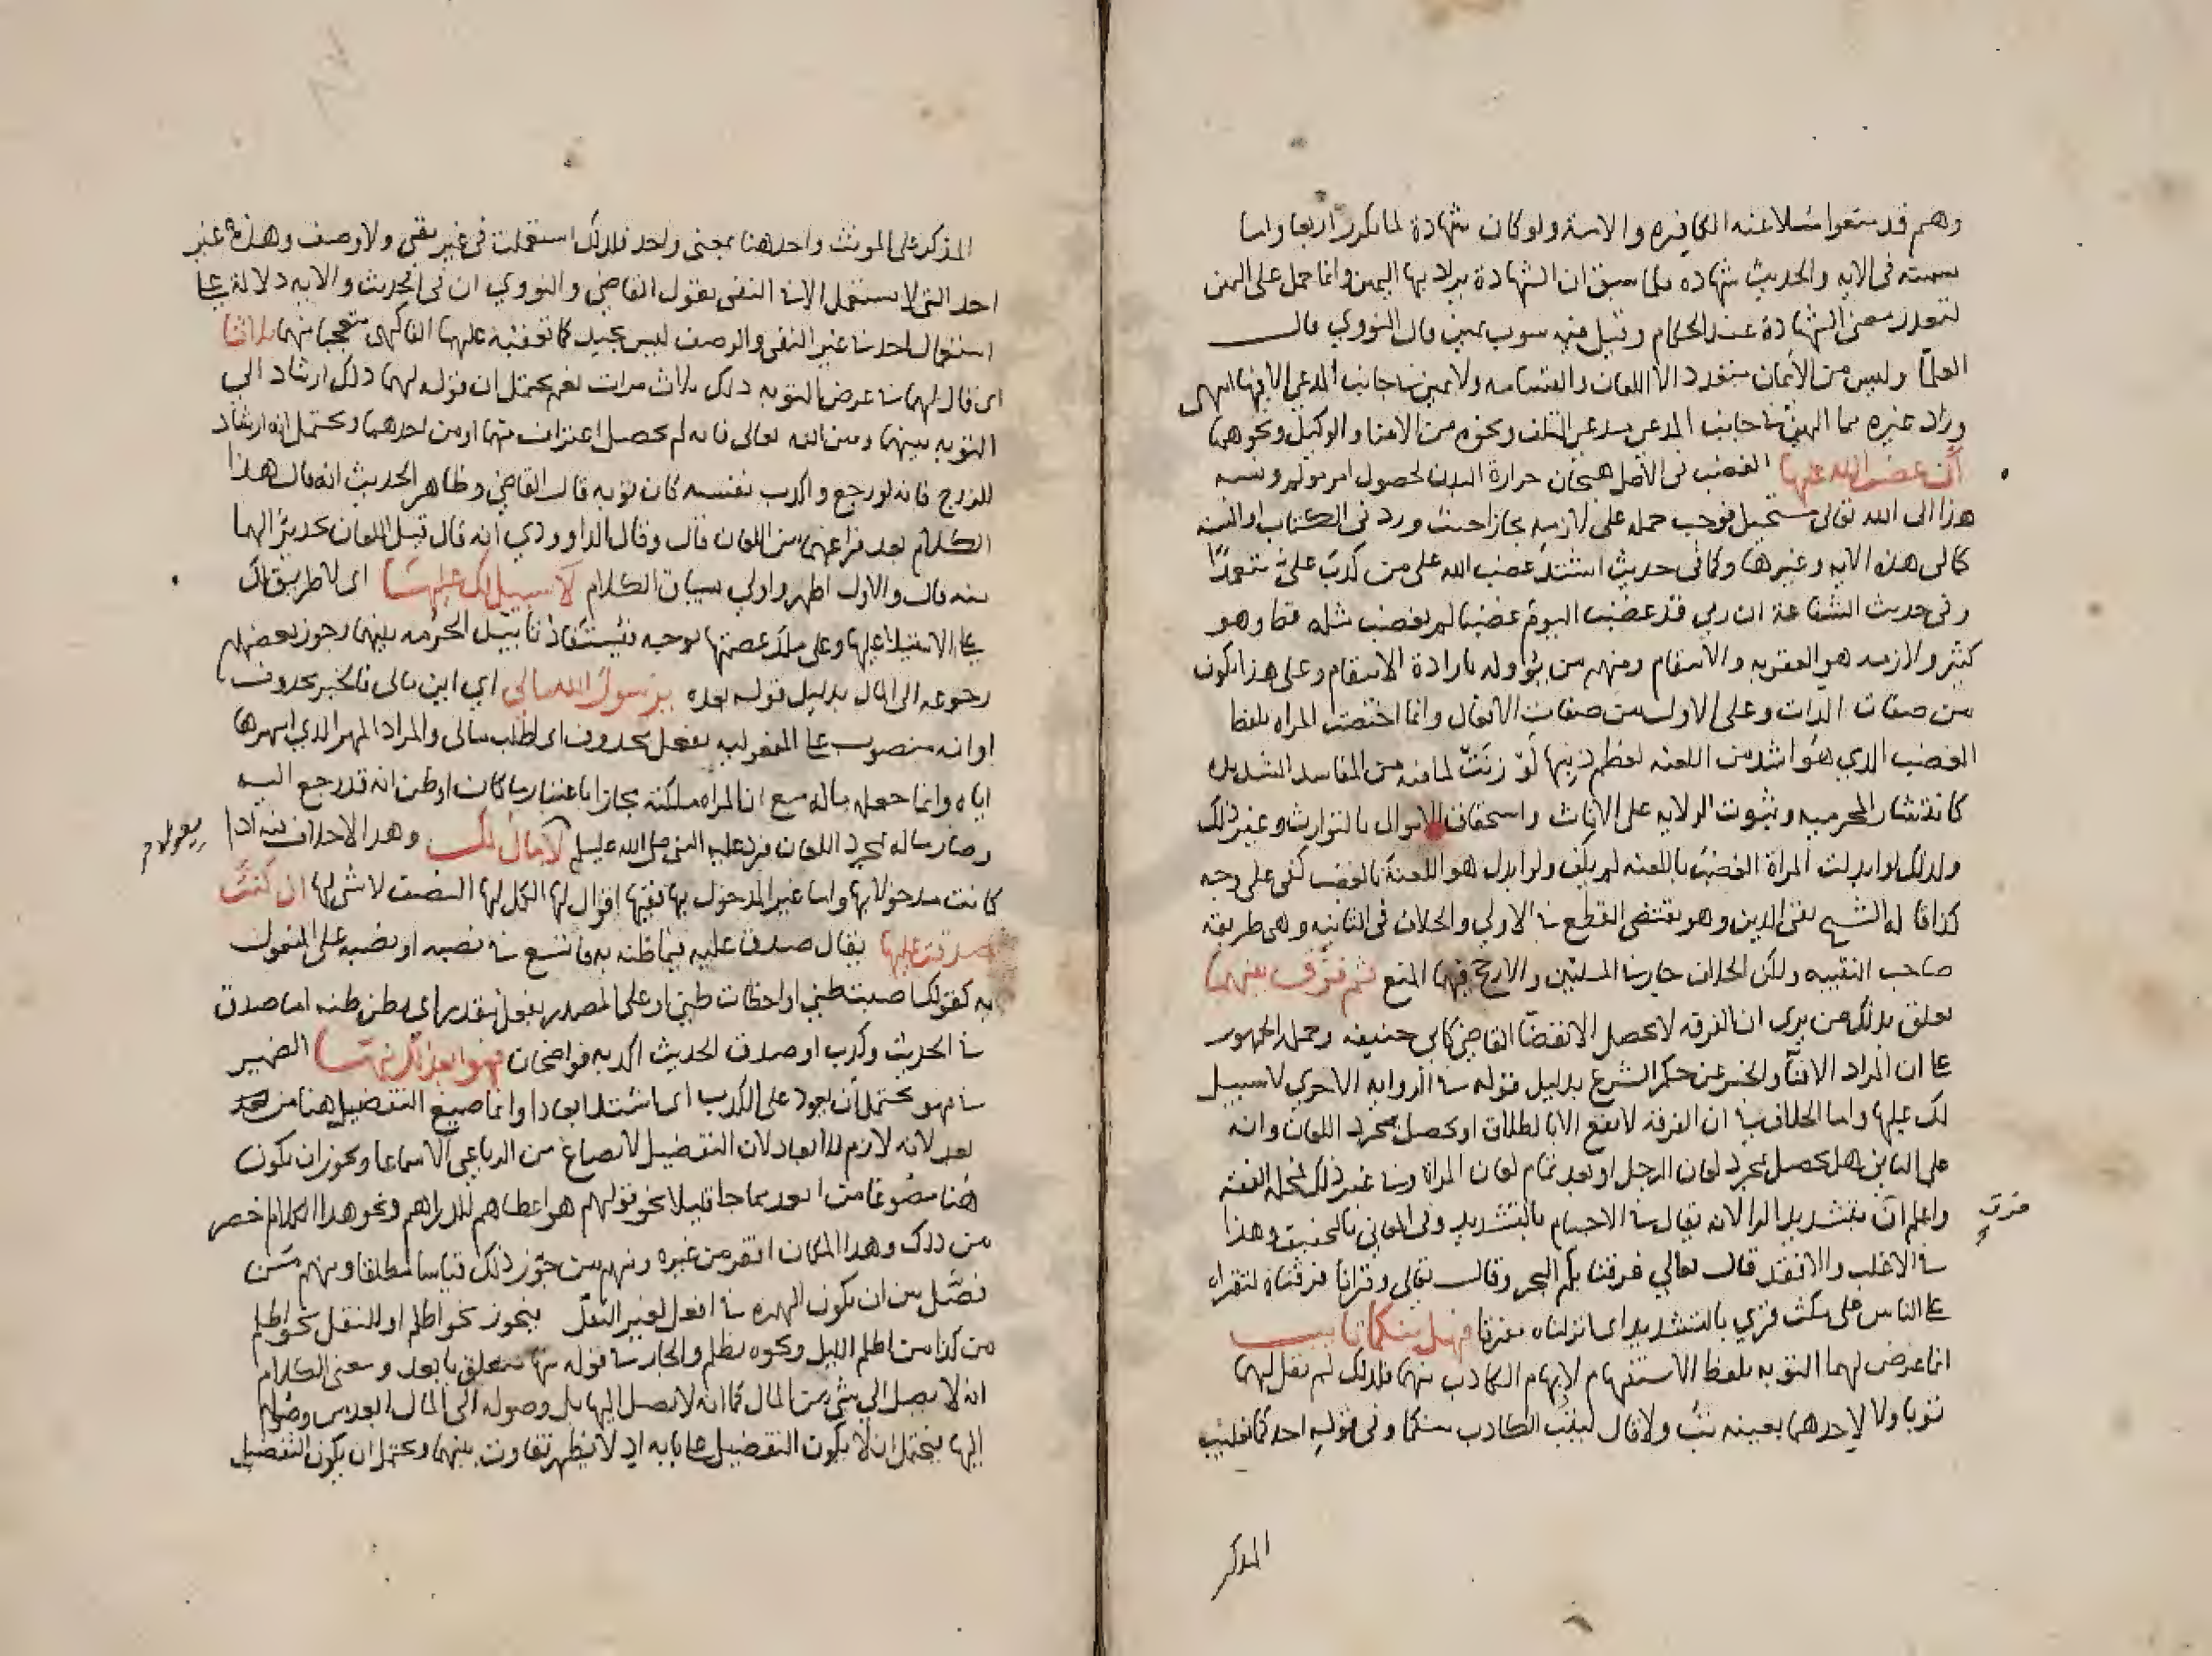 وهم قد منعوا ملاعنة الكافرة والامة ولو كان شهادة لما تكرر اربعا واما
تسميته في الآية والحديث شهادة فلما سبق ان الشهادة يراد بها اليمين وانما حمل على اليمين
لتعذر معنى الشهادة عند الحكام وقيل فيه شوب يمين قال النووي قال
العلما وليس من الأيمان متعدد الا اللعان والقسامة ولا يمين في جانب المدعي الا فيها انتهى
وزاد غيره مما اليمين في جانب المدعي مدعي التلف ونحوه من الامنا والوكيل ونحوهما
أن غضب الله عليها الغضب في الاصل هيجان حرارة البدن لحصول امر مولم ونسبة
هذا الى الله تعالى مستحيل فوجب حمله على لازمه مجازا حيث ورد في الكتاب او السنة
كما في هذه الاية وغيرها وكما في حديث اشتد غضب الله على من كذب علي متعمدًا
وفي حديث الشفاعة ان ربي قد غضب اليوم غضبا لم يغضب مثله قط وهو
كثير ولازمه هو العقوبة والانتقام ومنهم من يؤوله بارادة الانتقام وعلى هذا يكون
من صفات الذات وعلى الاول من صفات الافعال وانما اختصت المراه بلفظ
الغضب الذي هو اشد من اللعنة لعظم ذنبها لو زنت لما فيه من المفاسد الشديدة
كانتشار المحرمية وثبوت الولاية على الاناث واستحقاق الاموال بالتوارث وغير ذلك
ولذلك لو ابدلت المراة الغضب باللعنة لم يكف ولو ابدل هو اللعنة بالغضب كفى على وجه
كذا قاله الشيخ تقي الدين وهو يقتضي القطع في الاولي والخلاف في الثانية وهي طريقة
صاحب التنبيه ولكن الخلاف جار في المسلتين والارجح فيهما المنع ثم فرَّق بينهما
تعلق بذلك من يرى ان الفرقة لا تحصل الا بقضا القاضي كابي حنيفة وحمله الجمهور
على ان المراد الافتآ والخبر عن حكم الشرع بدليل قوله في الرواية الاخري لا سبيل
لك عليها واما الخلاف في ان الفرقة لا تقع الا بالطلاق او تحصل بمجرد اللعان وانه
على الثاني هل تحصل بمجرد لعان الرجل او بعد تمام لعان المراة وفي غير ذلك فمحله الفقه
واعلم أن بتشديد الرا لانه يقال في الاجسام بالتشديد وفي المعاني بالتخفيف وهذا
فرق
في الاغلب والا فقد قال تعالي فرقنا بكم البحر وقال تعالى وقرانا فرقناه لتقراه
على الناس على مكث قري بالتشديد اي انزلناه مفرقا فهل منكما تايب
انما عرض لهما التوبة بلفظ الاستفهام لابهام الكاذب منهما فلذلك لم يقل لهما
توبا ولا لاحدهما بعينه تُب ولا قال ليتب الكاذب منكما وفي قوله احدكما تغليب
المذكر
المذكر على المونث واحد هنا بمعنى واحد فلذلك استعملت في غير نفي ولا وصف وهذه غير
احد التي لا تستعمل الا في النفي فقول القاضي والنووي ان في الحديث والاية دلالة على
استعمال احد في غير النفي والوصف ليس بجيد كما تعقبه عليهما الفاكهي متعجبا منهما ثلاثا
اي قال لهما في عرض التوبة ذلك ثلاث مرات نعم يحتمل ان قوله لهما ذلك ارشاد الي
التوبة بينهما وبين الله تعالى فانه لم يحصل اعتراف منهما او من احدهما ويحتمل انه ارشاد
للزوج فانه لو رجع واكذب نفسه كان توبة قال القاضي وظاهر الحديث انه قال هذا
الكلام بعد فراغهما من اللعان قال وقال الداوودي انه قال قبل اللعان تحذيرًا لهما
منه قال والاول اظهر واولي بسياق الكلام لا سبيل لك عليها اي لا طريق لك
على الاستيلا عليها وعلى ملك عصمتها بوجه فيُستفاد تابيد الحرمة بينهما وجوز بعضهم
رجوعه الى المال بدليل قوله بعده يرسول الله مالى اي اين مالى فالخبر محذوف
او انه منصوب على المفعولية بفعل محذوف اى اطلب مالى والمراد المهر الذي امهرها
اياه وانما جعله ماله مع ان المراه ملكته مجازا باعتبار ما كان او ظن انه قد رجع اليه
وصار ماله بمجرد اللعان فرد عليه النبي صلى الله عليه وسلم لا مال لك وهذا لا خلاف فيه اذا
كانت مدخولا بها واما غير المدخول بها ففيها اقوال لها الكل لها النصف لا شي لها ان كنتَ
صدقت عليها يقال صدق عليه فيما ظنه به فاتسع في نصبه او نصبه على المفعول
به كقولك اصبت ظني او اخطات ظني او على المصدر بفعل مقدر اي يظن ظنه اما صدق
في الحديث وكذب او صدق الحديث اكذبه فواضحان فهو ابعد لك منها الضمير
في فهو يحتمل أن يعود على الكذب اي اشتد ابعادا وانما صيغ التفضيل هنا من
بعد لانه لازم لان التفضيل لا يصاغ من الرباعي الا سماعا ويجوز ان يكون
هُنا مصُوغا من ابعد مما جا قليلا نحو قولهم هو اعطاهم للدراهم ونحو هذا الكلام اخصر
من ذلك وهذا المكان اقفر من غيره ومنهم من جوّز ذلك قياسا مطلقا ومنهم مَن
فصَّل بين ان يكون الهمزة في افعل لغير النقل فيجوز نحو اظلم او للنقل نحو
من كذا من اظلم الليل ونحوه يظلم والجار في قوله منها متعلق بابعد ومعنى الكلام
انه لا يصل الى شي من المال كما انه لا يصل اليها بل وصوله الى المال ابعد من وصوله
اليها فيحتمل ان لا يكون التفضيل على بابه اذ لا يظهر تفاوت بينهما ويحتمل ان يكون التفضيل